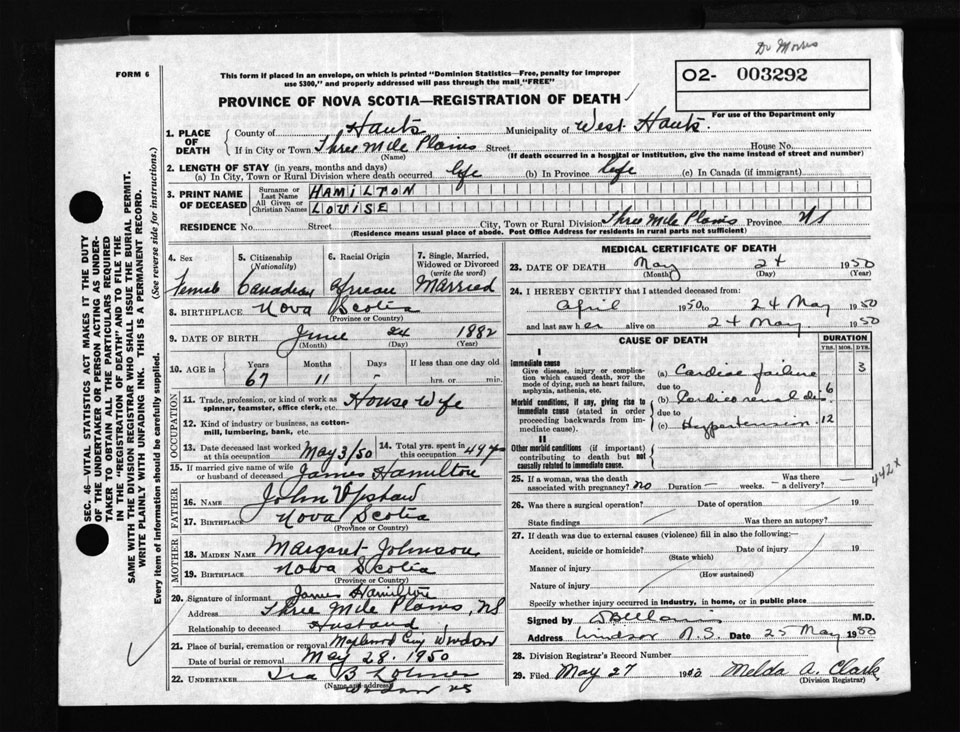 Dr Morris
FORM 6
This form if placed in an envelope, on which is printed "Dominion Statistics—Free, penalty for improper
use $300," and properly addressed will pass through the mail "FREE"
PROVINCE OF NOVA SCOTIA—REGISTRATION OF DEATH
O2- 003292
For use of the Department only
1. PLACE OF DEATH { County of Hants Municipality of West Hants.
If in City or Town Three Mile Plains Street House No.
(Name) (If death occurred in a hospital or institution, give the name instead of street and number)
2. LENGTH OF STAY (in years, months and days)
(a) In City, Town or Rural Division where death occurred life (b) In Province life (c) In Canada (if immigrant)
3. PRINT NAME OF DECEASED { Surname or Last Name HAMILTON
All Given or Christian Names LOUISE
RESIDENCE No. Street City, Town or Rural Division Three Mile Plains Province NS
(Residence means usual place of abode. Post Office Address for residents in rural parts not sufficient)
4. Sex Female
5. Citizenship (Nationality) Canadian
6. Racial Origin African
7. Single, Married, Widowed or Divorced (write the word) Married
8. BIRTHPLACE Nova Scotia
(Province or Country)
9. DATE OF BIRTH June 24 1882
(Month) (Day) (Year)
10. AGE in { Years Months Days If less than one day old
67 11 hrs. or min.
OCCUPATION
11. Trade, profession, or kind of work as spinner, teamster, office clerk, etc. House Wife
12. Kind of industry or business, as cotton-mill, lumbering, bank, etc.
13. Date deceased last worked at this occupation May 3/50 14. Total yrs. spent in this occupation
15. If married give name of wife or husband of deceased James Hamilton
FATHER
16. NAME John Upshaw
17. BIRTHPLACE Nova Scotia
(Province or Country)
MOTHER
18. MAIDEN NAME Margaret Johnson
19. BIRTHPLACE Nova Scotia
(Province or Country)
20. Signature of informant James Hamilton
Address Three Mile Plains, NS
Relationship to deceased Husband
21. Place of burial, cremation or removal Windsor
Date of burial or removal May 28. 1950
22. UNDERTAKER Ira B
(Name and address) Windsor NS
MEDICAL CERTIFICATE OF DEATH
23. DATE OF DEATH May 24 1950
(Month) (Day) (Year)
24. I HEREBY CERTIFY that I attended deceased from:
April 1950 to 24 May 1950
and last saw her alive on 24 May 1950
CAUSE OF DEATH
DURATION
YRS. MOS. DYS.
I
Immediate cause
Give disease, injury or complication which caused death, not the mode of dying, such as heart failure, asphyxia, asthenia, etc.
(a) Cardiac failure 3
due to
Morbid conditions, if any, giving rise to immediate cause (stated in order proceeding backwards from immediate cause).
(b) Cardiorenal dis. 6
due to
(c) Hypertension 12
II
Other morbid conditions (if important) contributing to death but not causally related to immediate cause.
442x
25. If a woman, was the death associated with pregnancy? no Duration — weeks. Was there a delivery? —
26. Was there a surgical operation? Date of operation 19
State findings Was there an autopsy?
27. If death was due to external causes (violence) fill in also the following:—
Accident, suicide or homicide? Date of injury 19
(State which)
Manner of injury
(How sustained)
Nature of injury
Specify whether injury occurred in industry, in home, or in public place
Signed by M.D.
Address Windsor N.S. Date 25 May 1950
28. Division Registrar's Record Number
29. Filed May 27 1950 Melda A. Clark
(Division Registrar)
SEC. 46—VITAL STATISTICS ACT MAKES IT THE DUTY
OF THE UNDERTAKER OR PERSON ACTING AS UNDER-
TAKER TO OBTAIN ALL THE PARTICULARS REQUIRED
IN THE "REGISTRATION OF DEATH" AND TO FILE THE
SAME WITH THE DIVISION REGISTRAR WHO SHALL ISSUE THE BURIAL PERMIT.
WRITE PLAINLY WITH UNFADING INK. THIS IS A PERMANENT RECORD.
Every item of information should be carefully supplied. (See reverse side for instructions.)